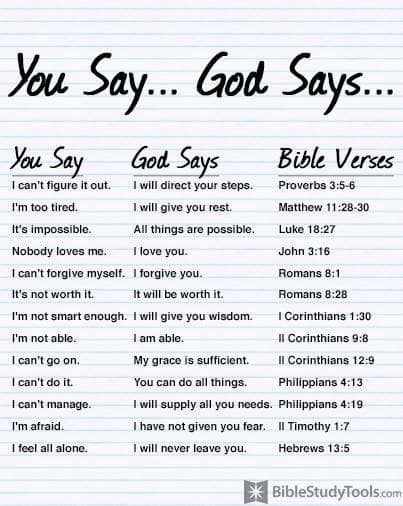 You Say... God Says...
You Say God Says Bible Verses
I can't figure it out. I will direct your steps. Proverbs 3:5-6
I'm too tired. I will give you rest. Matthew 11:28-30
It's impossible. All things are possible. Luke 18:27
Nobody loves me. I love you. John 3:16
I can't forgive myself. I forgive you. Romans 8:1
It's not worth it. It will be worth it. Romans 8:28
I'm not smart enough. I will give you wisdom. I Corinthians 1:30
I'm not able. I am able. II Corinthians 9:8
I can't go on. My grace is sufficient. II Corinthians 12:9
I can't do it. You can do all things. Philippians 4:13
I can't manage. I will supply all you needs. Philippians 4:19
I'm afraid. I have not given you fear. II Timothy 1:7
I feel all alone. I will never leave you. Hebrews 13:5
BibleStudyTools.com